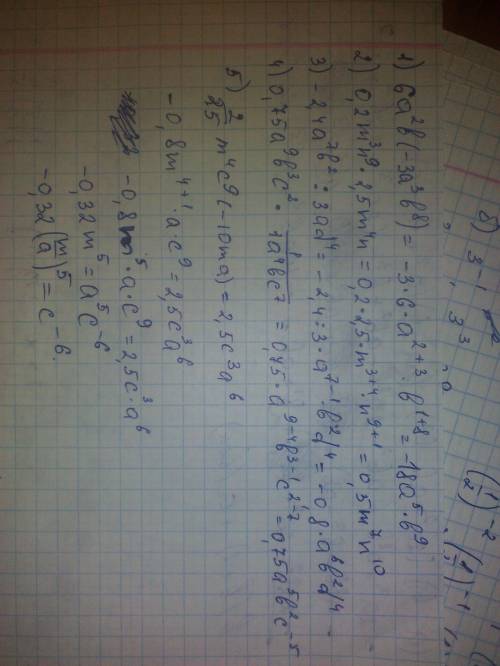 б) 3⁻¹
3³
(1/2)⁻²
1) 6a²b(-3a³b⁸) = -3·6·a²⁺³·b¹⁺⁸ = -18a⁵·b⁹
2) 0,2m³n⁹·2,5m⁴n = 0,2·2,5·m³⁺⁴·n⁹⁺¹ = 0,5m⁷n¹⁰
3) -2,4a⁷b²:3ad⁴ = -2,4:3·a⁷⁻¹·b²/d⁴ = -0,8·a⁶b²/d⁴
4) 0,75a⁹b³c²· 1/1a⁴bc⁷ = 0,75·a⁹⁻⁴b³⁻¹c²⁻⁷ = 0,75a⁵b²c⁻⁵
5) 2/25 m⁴c⁹(-10ma) = 2,5c³a⁶
-0,8m⁴⁺¹·ac⁹ = 2,5c³a⁶
-0,8m⁵·a·c⁹ = 2,5c³·a⁶
-0,32m⁵ = a⁵c⁻⁶
-0,32(m/a)⁵ = c⁻⁶.